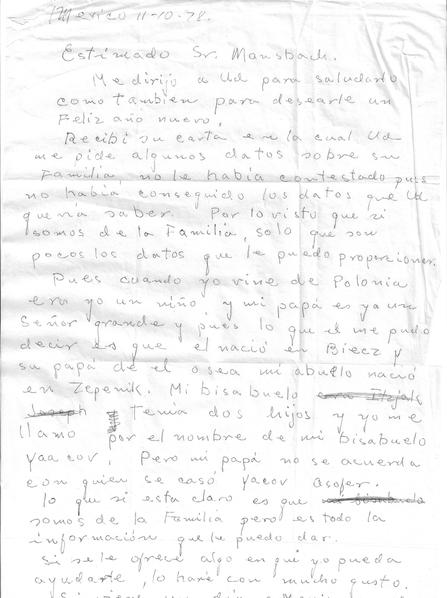 Mexico 11-10-78.
Estimado Sr. Mansbach.
Me dirijo a Ud para saludarlo
como tambien para desearle un
Feliz año nuevo.
Recibi su carta en la cual Ud
me pide algunos datos sobre su
Familia, no le habia contestado pues
no habia conseguido los datos que Ud
queria saber. Por lo visto que si
somos de la Familia, solo que son
pocos los datos que le puedo proporcionar.
Pues cuando yo vine de Polonia
era yo un niño, y mi papá es ya un
Señor grande y pues lo que el me pudo
decir es que el nació en Biecz y
su papá de el osea mi abuelo nació
en Zepenik. Mi bisabuelo
Joseph tenia dos hijos y yo me
llamo por el nombre de mi bisabuelo
Yaacov. Pero mi papá no se acuerda
con quien se casó Yacov Asofer.
lo que si esta claro es que
somos de la Familia pero es todo la
información que le puedo dar.
Si se le ofrece algo en qué yo pueda
ayudarle, lo haré con mucho gusto.